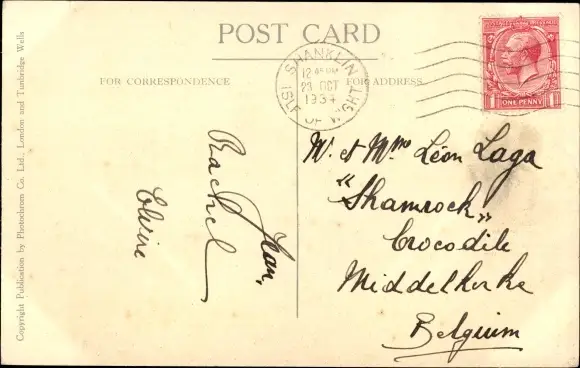 POST CARD
FOR CORRESPONDENCE
FOR ADDRESS.
SHANKLIN
12 45 PM
23 OCT
1934
ISLE OF WIGHT
ONE PENNY
M. et Mme Léon Laga
"Shamrock"
Crocodile
Middelkerke
Belgium
Jean,
Rachel
Elvire
Copyright Publication by Photochrom Co. Ltd., London and Tunbridge Wells